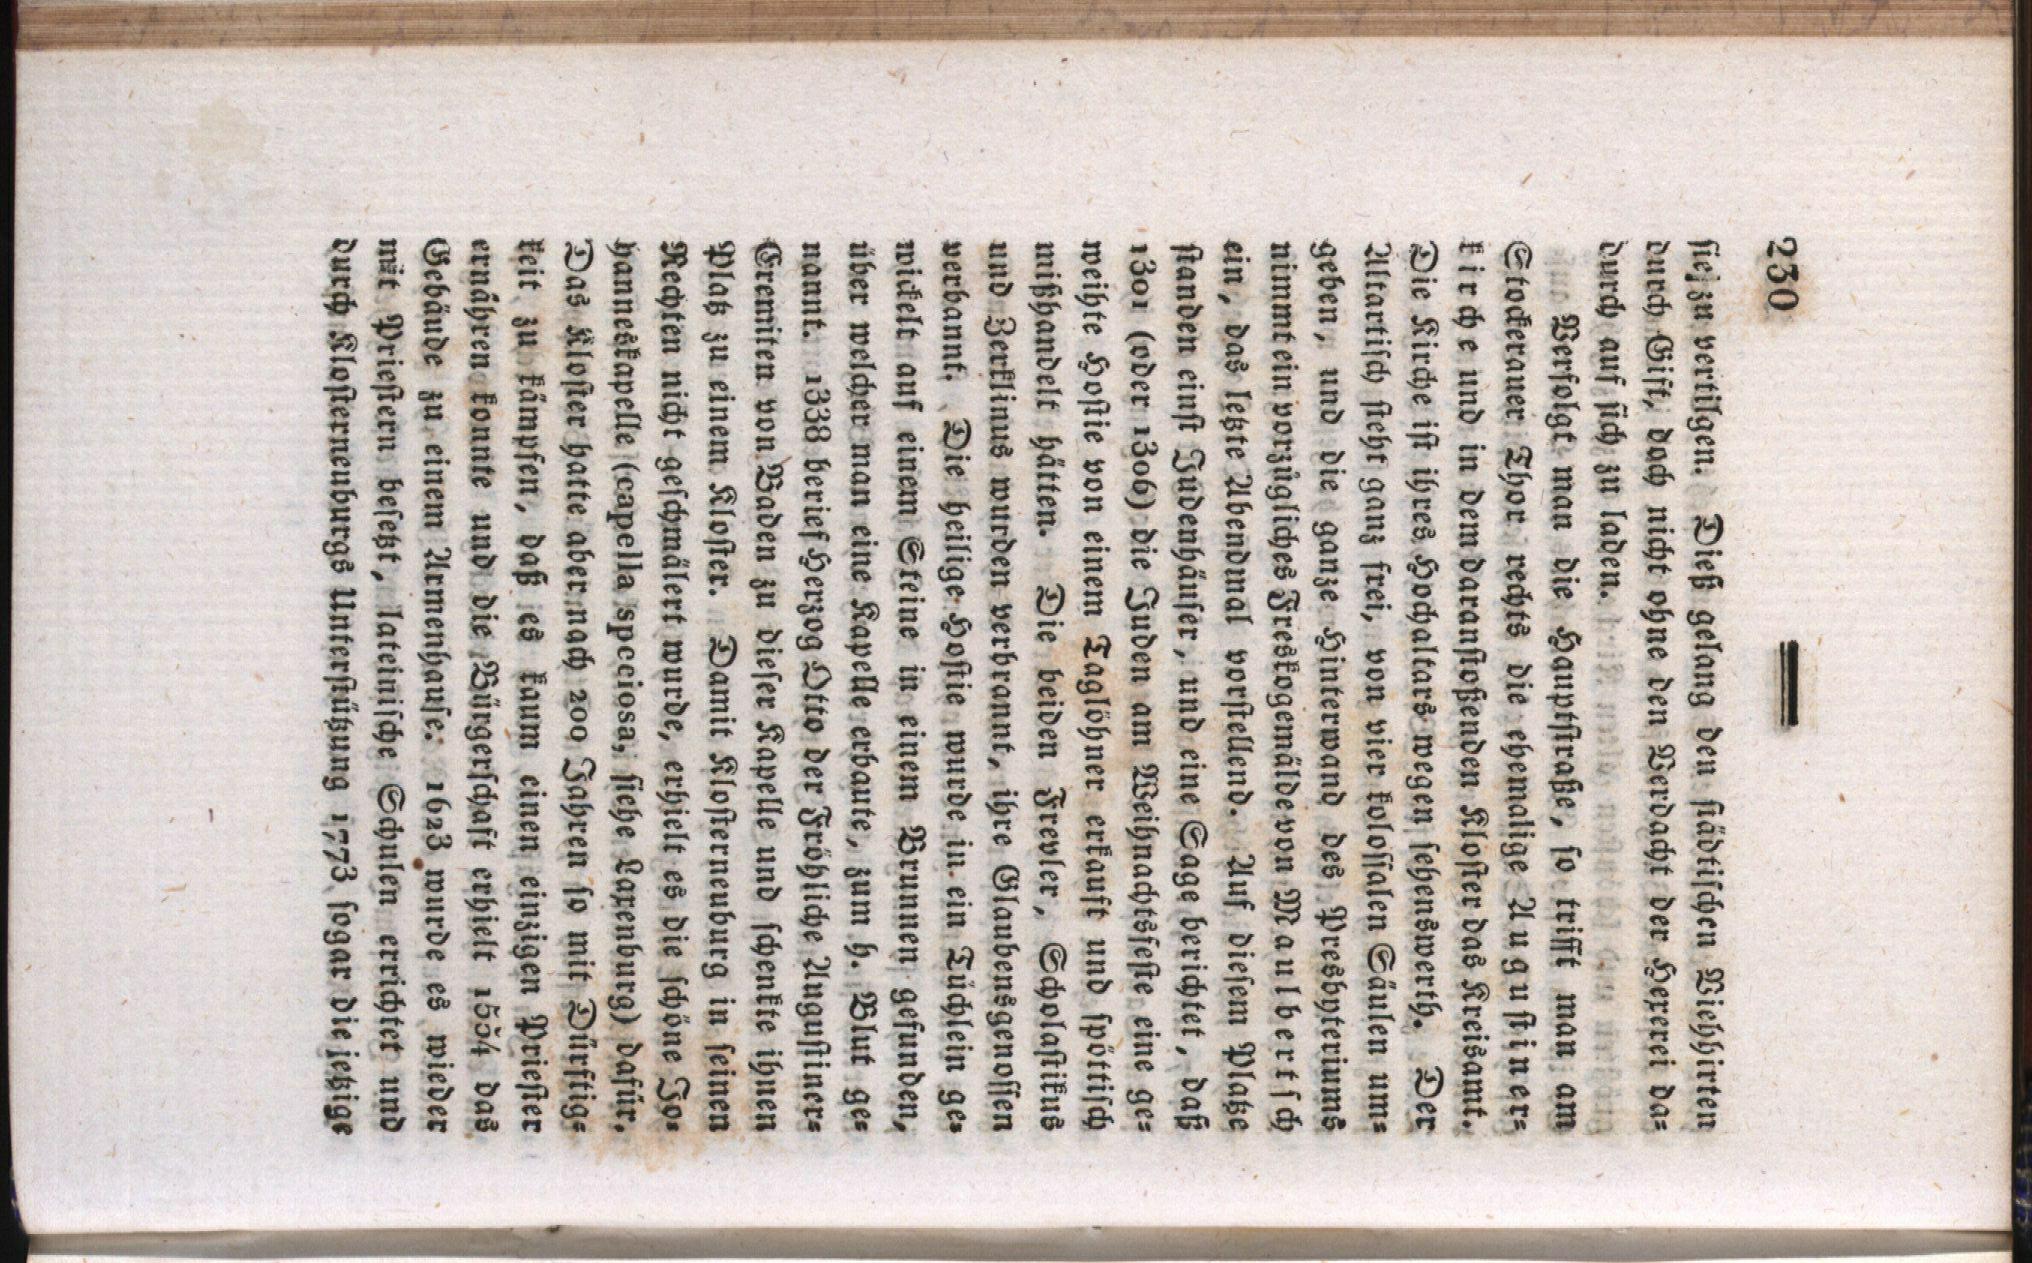 230
sie zu vertilgen. Dieß gelang den städtischen Viehhirten
durch Gift, doch nicht ohne den Verdacht der Hexerei da=
durch auf sich zu laden.
Verfolgt man die Hauptstraße, so trifft man am
Stockerauer Thor rechts die ehemalige Augustiner=
kirche und in dem daranstoßenden Kloster das Kreisamt.
Die Kirche ist ihres Hochaltars wegen sehenswerth. Der
Altartisch steht ganz frei, von vier kolossalen Säulen um=
geben, und die ganze Hinterwand des Presbyteriums
nimmt ein vorzügliches Freskogemälde von Maulbertsch
ein, das letzte Abendmal vorstellend. Auf diesem Platze
standen einst Judenhäuser, und eine Sage berichtet, daß
1301 (oder 1306) die Juden am Weihnachtsfeste eine ge=
weihte Hostie von einem Taglöhner erkauft und spöttisch
mißhandelt hätten. Die beiden Frevler, Scholastikus
und Zerklinus wurden verbrannt, ihre Glaubensgenossen
verbannt. Die heilige Hostie wurde in ein Tüchlein ge=
wickelt auf einem Steine in einem Brunnen gefunden,
über welcher man eine Kapelle erbaute, zum h. Blut ge=
nannt. 1338 berief Herzog Otto der Fröhliche Augustiner=
Eremiten von Baden zu dieser Kapelle und schenkte ihnen
Platz zu einem Kloster. Damit Klosterneuburg in seinen
Rechten nicht geschmälert wurde, erhielt es die schöne Jo=
hanneskapelle (capella speciosa, siehe Laxenburg) dafür.
Das Kloster hatte aber nach 200 Jahren so mit Dürftig=
keit zu kämpfen, daß es kaum einen einzigen Priester
ernähren konnte und die Bürgerschaft erhielt 1554 das
Gebäude zu einem Armenhause. 1623 wurde es wieder
mit Priestern besetzt, lateinische Schulen errichtet und
durch Klosterneuburgs Unterstützung 1773 sogar die jetzige